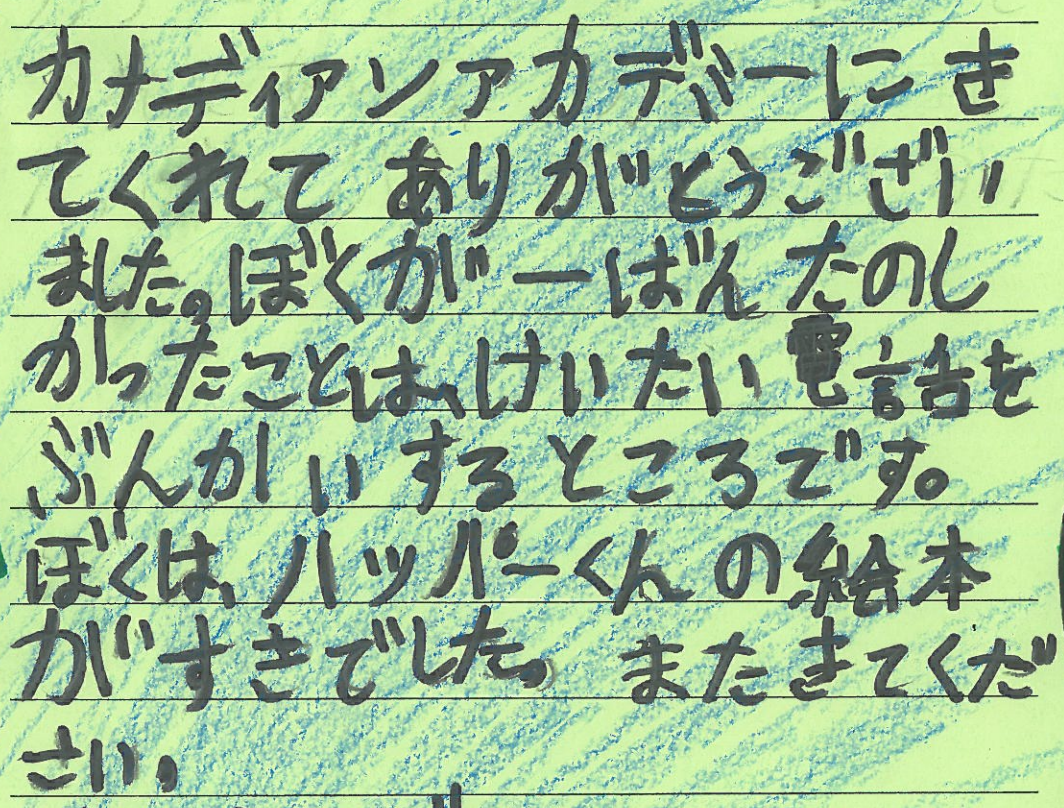 カナディアンアカデミーにき
てくれて ありがとうござい
ました。ぼくが一ばん たのし
かったことは、けいたい電話を
ぶんかいするところです。
ぼくは、ハッパーくんの絵本
がすきでした。またきてくだ
さい。